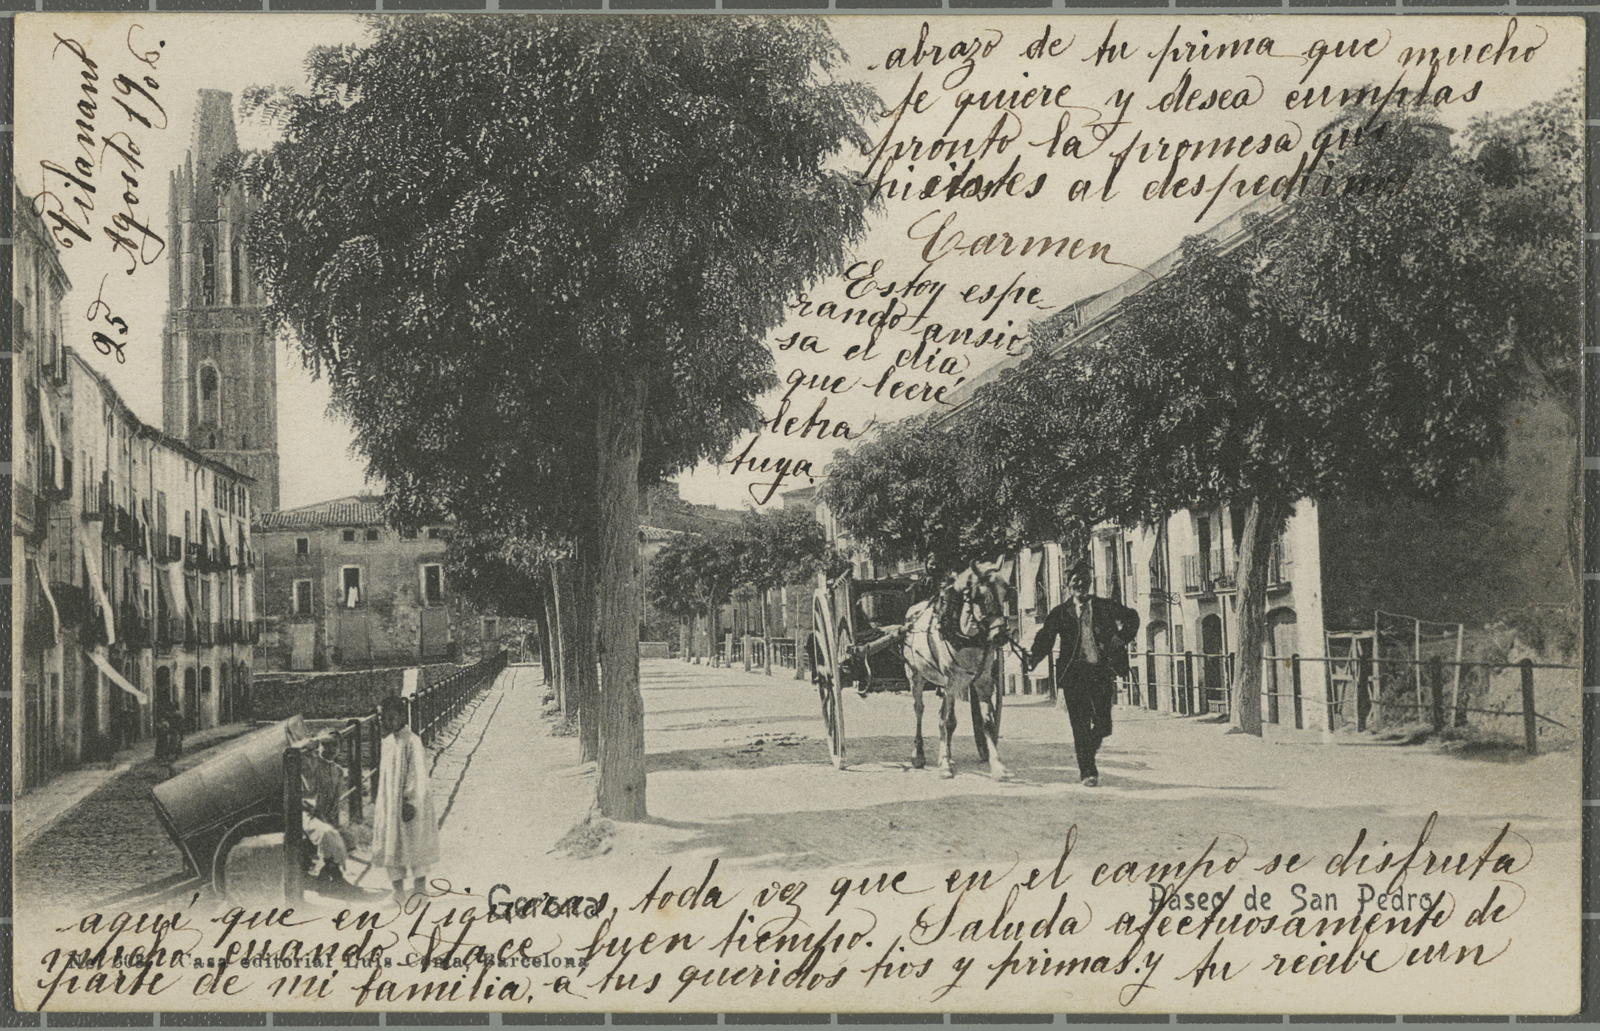 Vilamant
25 Agosto 1906.
aquí que en Figueras, toda vez que en el campo se disfruta
mucho cuando hace buen tiempo. Saluda afectuosamente de
parte de mi familia, á tus queridos tios y primas.y tu recibe un
abrazo de tu prima que mucho
te quiere y desea cumplas
pronto la promesa que
hicistes al despedirnos
Carmen
Estoy espe-
rando ansio
sa el dia
que leeré
letra
tuya.
Gerona
Paseo de San Pedro
Casa editorial Luis Barcelona